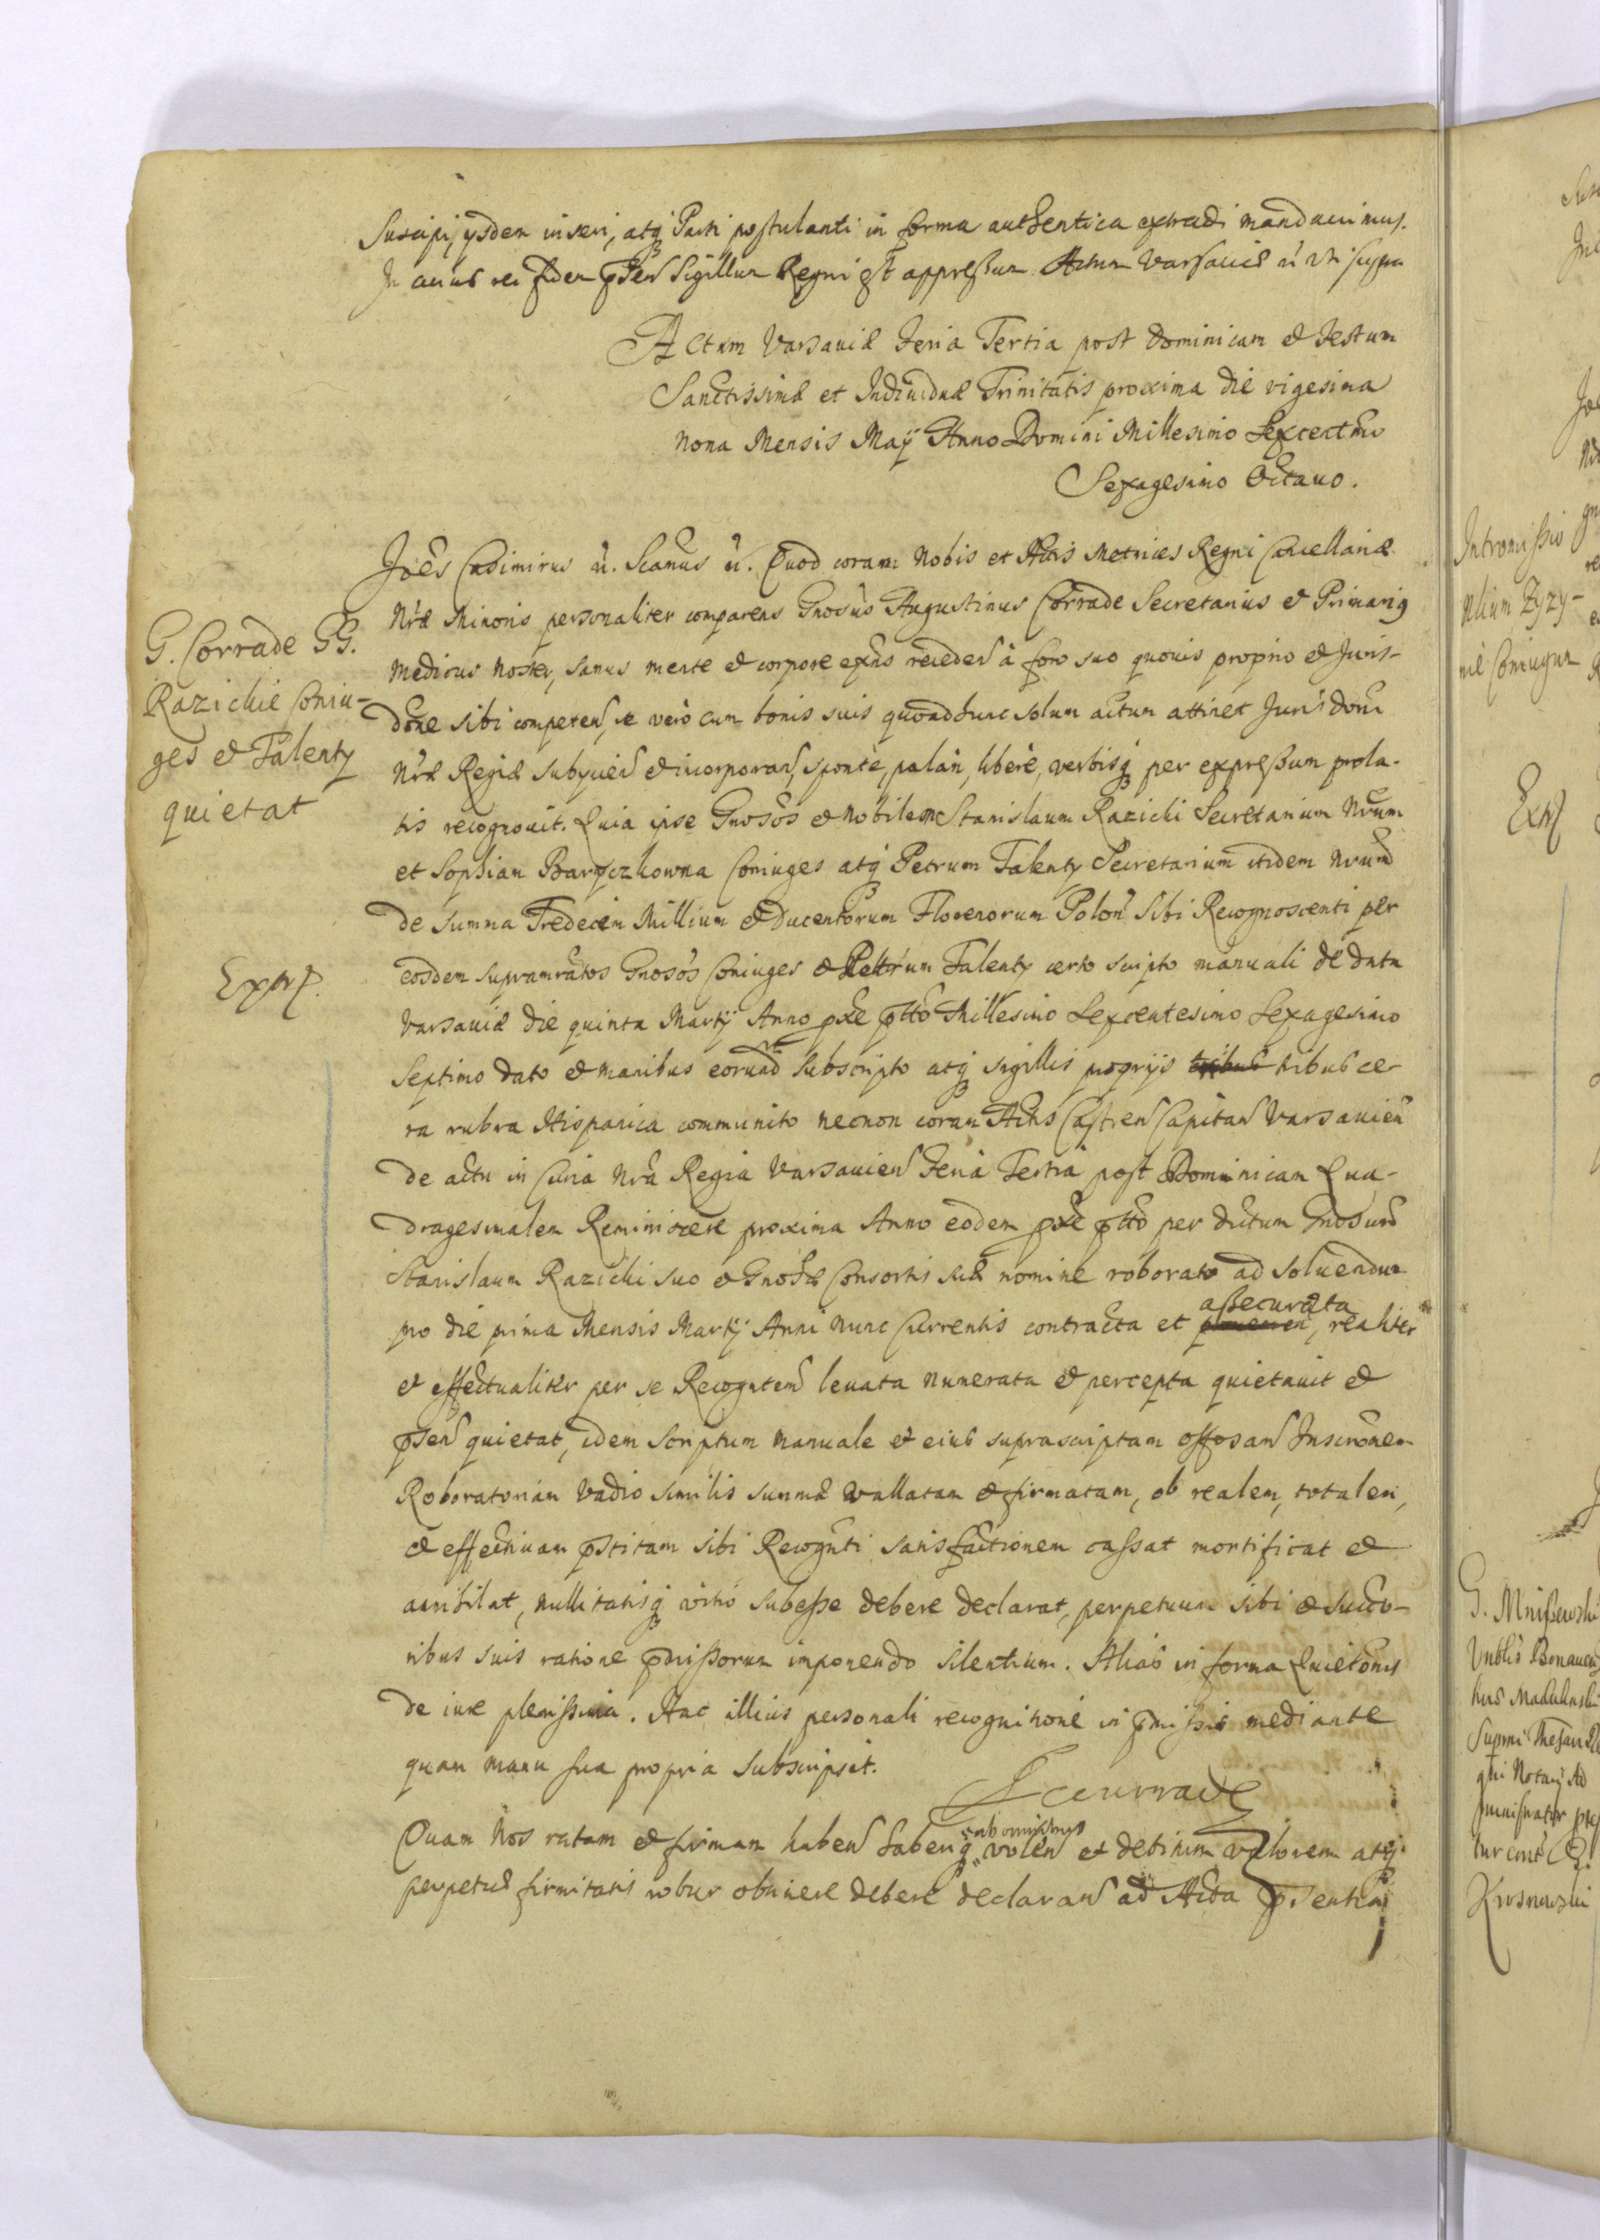 Suscipi, ysdem inseri, atq Parti postulanti in forma authentica extradi mandavimus.
In cuius rei fidem pñs Sigillum Regni est appressum. Actum Varsaviæ ut supra
Actum Varsaviæ Feria Tertia post Dominicam et Festum
Sanctissimæ et Individuæ Trinitatis proxima die vigesima
nona Mensis Maÿ Anno Domini Millesimo Sexcentmo
Sexagesimo Octavo.
Joẽs Casimirus ũ. Scamus ũ. Quod coram Nobis et Actis Metrices Regni Cancellariæ
Nræ Minoris personaliter comparens Gnosus Augustinus Corrade Secretarius et Primariq
Medicus Noster, sanus mente et corpore exñs recedeñ à foro suo quovis proprio et Juris-
dõne sibi competeñ, se verò cum bonis suis quoad hunc solum actum attinet Jurisdoni
Nræ Regiæ subycieñ et incorporañ, sponte, palàm, liberè, verbisq per expressum prola-
tis recognovit. Quia ipse Gnosos et Nobilem Stanislaum Razicki Secretarium Nrum
et Sophiam Baryczkowna Coniuges atq Petrum Talenty Secretarium itidem Nrum
de summa Tredecim Millium et Ducentorum Florenorum Poloñ sibi Recognoscenti per
eosdem supramratos Gnosos Coniuges et Petrum Talenty certo scripto manuali de data
Varsaviæ die quinta Martÿ Anno pxe ptto Millesimo Sexcentesimo Sexagesimo
Septimo dato et manibus eorund subscripto atq sigillis proprÿs tribus tribus ce-
ra rubra Hispanica communito necnon coram Actis Castreñ Capitañ Varsavieñ
de actu in Curia Nra Regia Varsavieñ Feria Tertia post Dominicam Qua-
dragesimalem Reminiscere proxima Anno eodem pxe ptto per dictum Gnosum
Stanislaum Razicki suo et Gnosæ Consortis suæ nomine roborato ad solvendum
pro die prima Mensis Martÿ Anni nunc Currentis contracta et assecurata, realiter
et effectualiter per se Recogntem levata numerata et percepta quietavit et
pseñ quietat, idem Scriptum manuale et eius suprascriptam Inscrõnem
Roboratoriam vadio similis summæ vallatam et firmatam, ob realem, totalem,
et effectivam pstitam sibi Recognti satisfactionem cassat mortificat et
annihilat, nullitatisq vitio subesse debere declarat, perpetuum sibi et succo-
ribus suis ratione pmissorum imponendo silentium. Alias in forma Quietonis
de iure plenissima. Hac illius personali recognitione in pmissis mediante
quam manu sua propria subscripsit.
Quam Nos ratam et firmam habeñ haberiq ab omnibus voleñ et debitum valorem atq
perpetuæ firmitatis robur obtinere debere declarañ ad Acta psentia
G. Corrade GG.
Razickie Coniu-
ges et Talenty
quietat
Extr.
Intromissio
Zyzy-
Coniugum
Extr